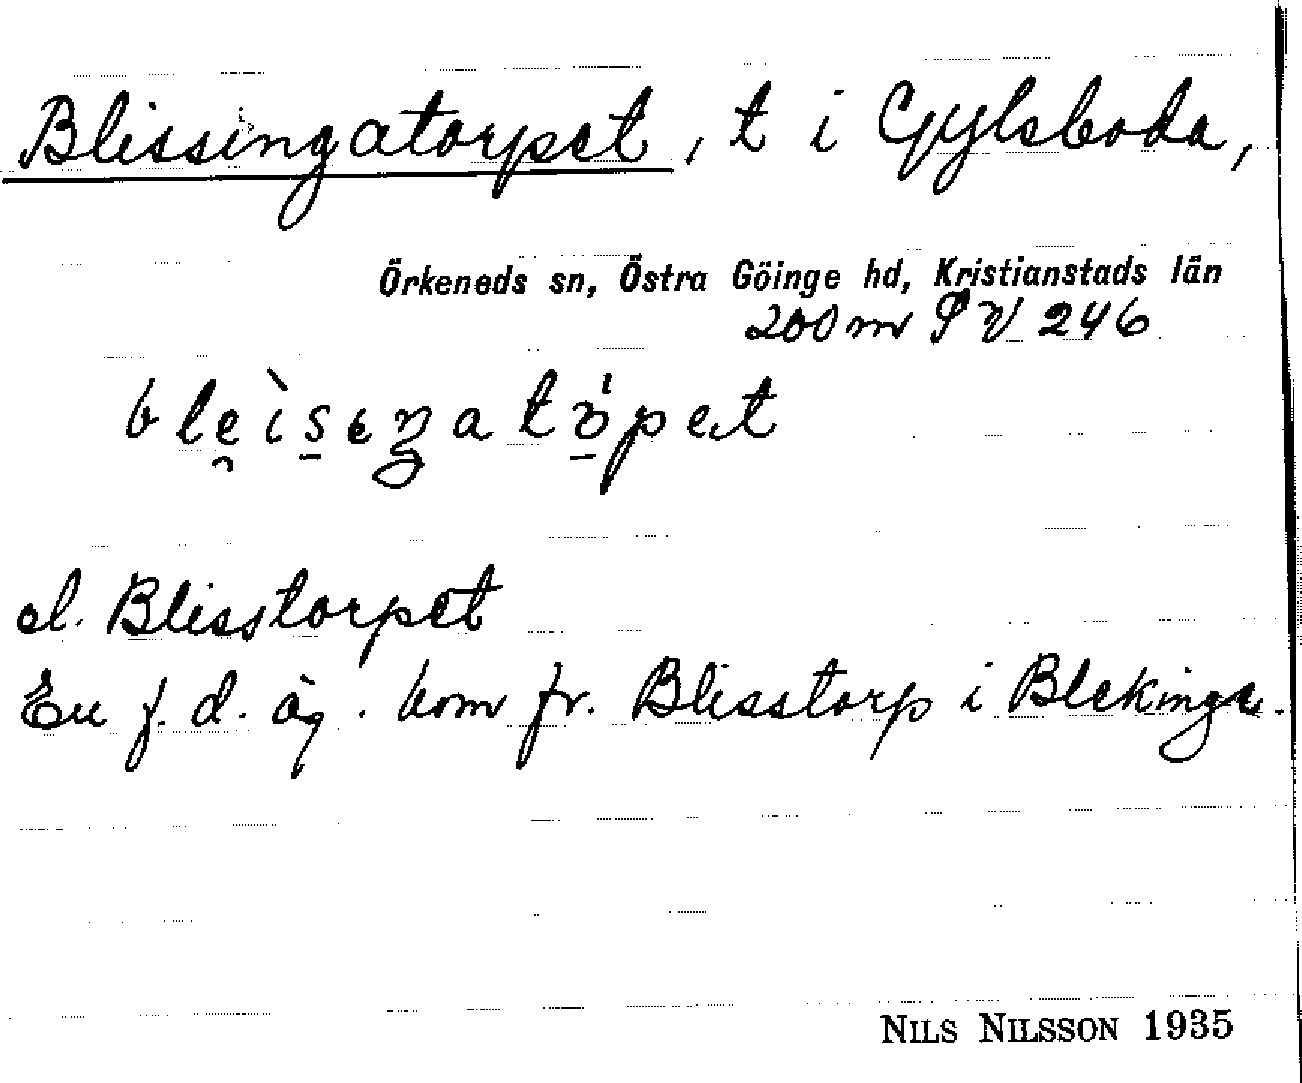 Blissingatorpet, t i Gylsboda,
Örkeneds sn, Östra Göinge hd, Kristianstads län
200 m SV 246
el. Blisstorpet
En f. d. äg. kom fr. Blisstorp i Blekinge.
NILS NILSSON 1935